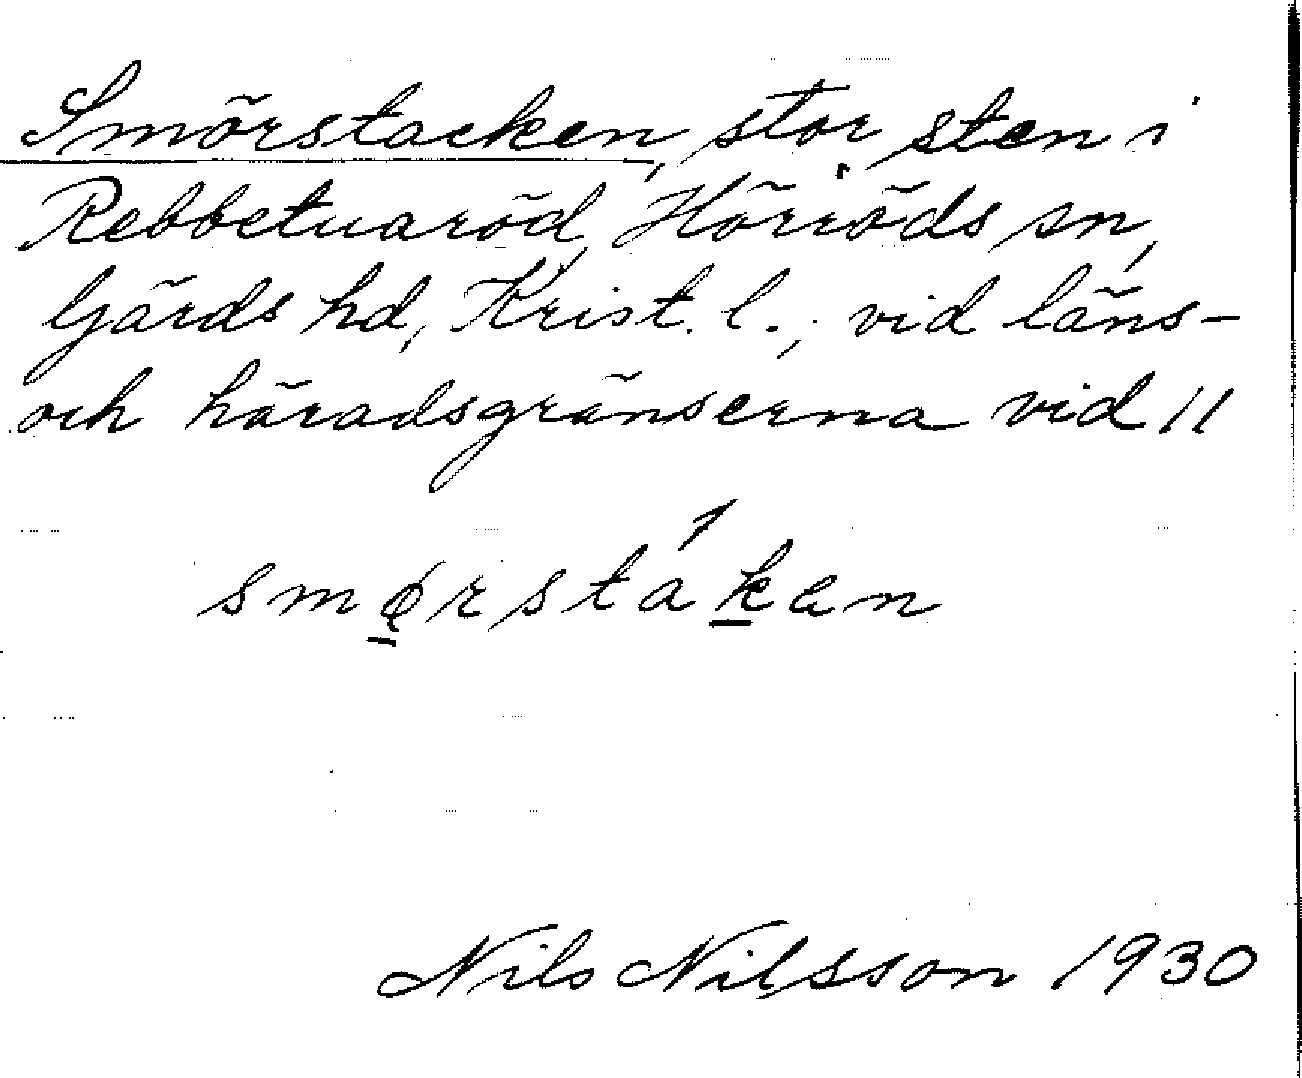 Smörstacken, stor sten i
Rebbetuaröd, Hörröds sn,
Gärds hd, Krist. l., vid läns-
och häradsgränserna vid 11
smø̱rstáḵen
Nils Nilsson 1930